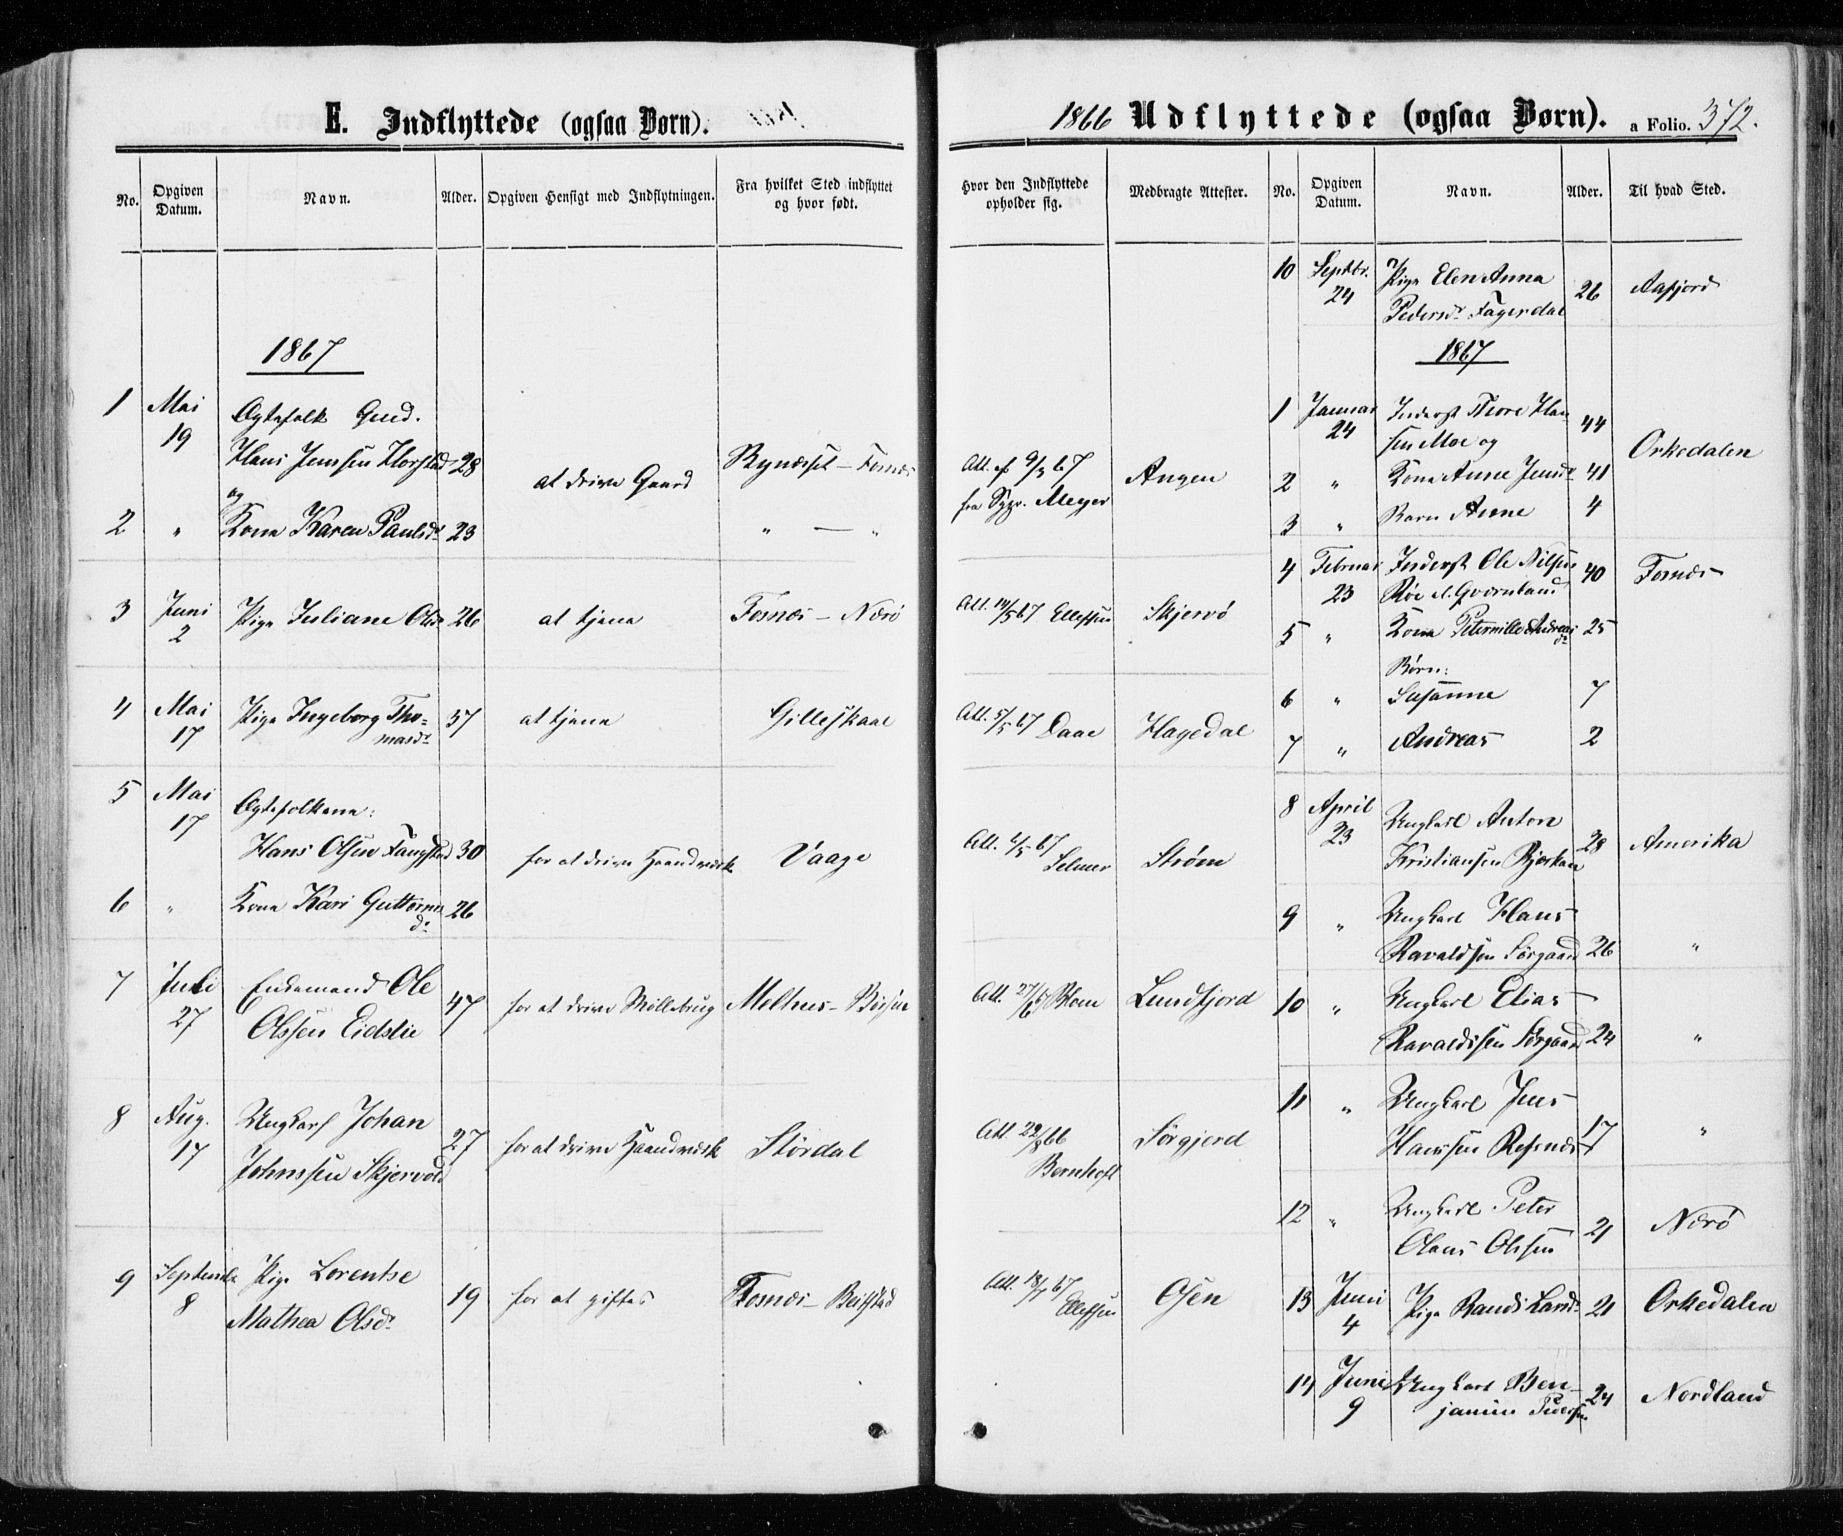 E. Indflyttede (ogsaa Børn).
No.
Opgiven
Datum.
Navn.
Alder.
Opgiven Hensigt med Indflytningen.
Fra hvilket Sted indflyttet
og hvor født.
1867
1 Mai
19
Ægtefolk Grd.
Hans Jensen Horstad 28
at drive Gaard
Fosnæs
og
2 " Kone Karen Paulsdr 23 " — "
3 Juni
2
Pige Juliane Olsdr 26 at tjene Fosnæs – Nærø
4 Mai
17
Pige Ingeborg Tho-
masdr
37 at tjene Gilleskaal
5 Mai
17
Ægtefolkene:
Hans Olsen Fangstad 30 for at drive Haandværk Vaage
6 " Kone Kari Guttorms
dr
26
7 Juli
27
Enkemand Ole
Olssen Eidslie
47 for at drive Møllebrug
8 Aug.
17
Ungkarl Johan
Johnssen Skjervold
27 for at drive Haandværk Størdal
9 September
8
Pige Lorentse
Mathea Olsdr
19 for at giftes Fosnæs – Beitstad
1866 Udflyttede (ogsaa Børn). a Folio. 372.
Hvor den Indflyttede
opholder sig.
Medbragte Attester.
No.
Opgiven
Datum.
Navn.
Alder.
Til hvad Sted.
Att. af 9/3 67
fra Meyer
Angen
Att. 14/5 67 Ellefsen Skjervø
Att. 5/5 67 Daae Hagedal
Att. 4/5 67
Selmer
Strøm
Att. 27/6 67 Blom Lundfjord
Att. 22/8 66
Bernhoft
Sørgjerd
Att. 18/7 67
Ellefsen
Osen
10 Septbr.
24
Pige Elen Anna
Pedersdr Fagerdal
26 Aafjord
1867
1 Januar
24
Inderst Thore Han
sen Moe og
44
Orkedalen
2 " Kone Anne Jensdr 41
3 " Barn Anne 4
4 Februar
23
Inderst Ole Nilsen
Røe
40 Fosnæs
5 " Kone Pernille Andreas
dr
25
Børn:
6 " Susanne 7
7 " Andreas 2
8 April
23
Ungkarl Anton
Kristiansen Bjørkan
28 Amerika
9 " Ungkarl Hans
Ravaldsen Sørgaard
26 "
10 " Ungkarl Elias
Ravaldsen Sørgaard
24 "
11 " Ungkarl Jens
Hanssen Refsnæs
17 "
12 " Ungkarl Peter
Olaus Olssen
21 Nærø
13 Juni
4
Pige Randi Larsdr 21 Orkedalen
14 Juni
9
Ungkarl Ben-
jamin Pedersen
24 Nordland